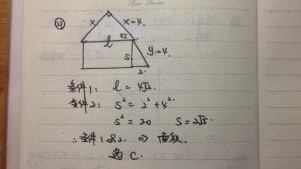 x x=4.
l 45
5 y=4.
2.
条件1: l = 4√2.
条件2: s² = 2² + 4².
s² = 20 s = 2√5.
∴ 条件1,2 ⇒ 面积.
选 C.